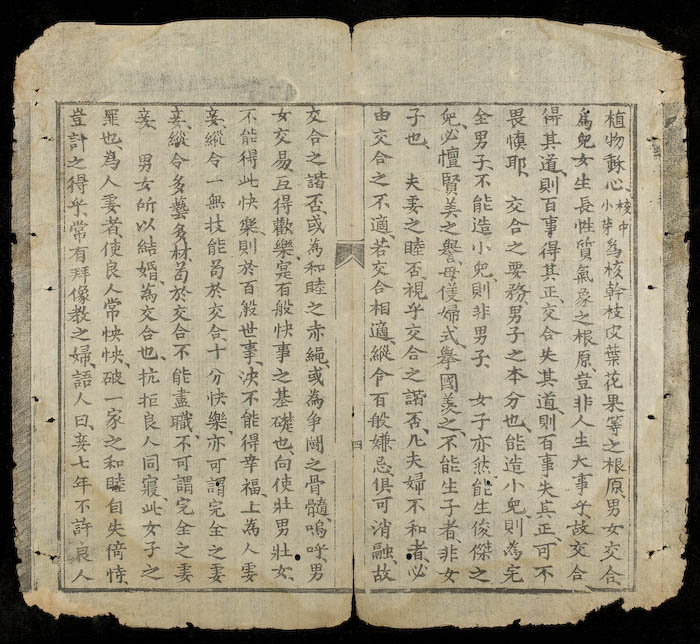 植物穌心、核中小芽為核幹枝皮葉花果等之根原、男女交合、
為兒女生長性質氣象之根原、豈非人生大事乎、故交合
得其道、則百事得其正、交合失其道、則百事失其正、可不
畏慎耶 交合之要務、男子之本分也、能造小兒、則為完
全男子、不能造小兒、則非男子、 女子亦然、能生俊傑之
兒、必擅賢美之譽、母儀婦式、舉國羨之、不能生子者、非女
子也、 夫妻之睦否、視乎交合之諧否、凡夫婦不和者、必
由交合之不適、若交合相適、縱令百般嫌忌、俱可消融、故
四
交合之諧否、或為和睦之赤繩、或為爭鬪之骨髓、嗚呼、男
女交易、互得歡樂、寔百般快事之基礎也、向使壯男壯女、
不能得此快樂、則於百般世事、決不能得幸福、上為人妻
妾、縱令一無技能、苟於交合、十分快樂、亦可謂完全之妻
妾、縱令多藝多材、苟於交合不能盡職、不可謂完全之妻
妾、 男女所以結婚、為交合也、抗拒良人同寢、此女子之
罪也、為人妻者、使良人常怏怏、破一家之和睦、自失倚恃、
豈計之得乎、常有拜像教之婦、語人曰、妾七年不許良人